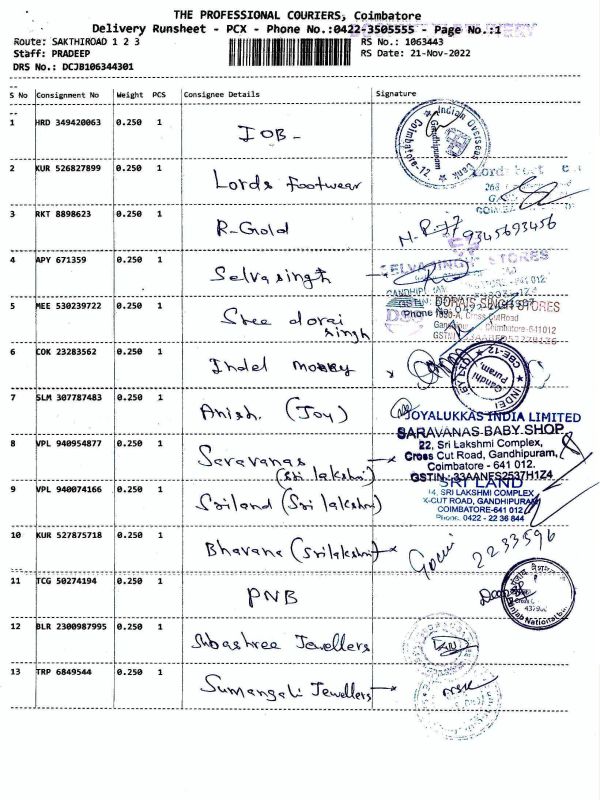 THE PROFESSIONAL COURIERS, Coimbatore
Delivery Runsheet - PCX - Phone No.:0422-3505555 - Page No.:1
Route: SAKTHIROAD 1 2 3 RS No.: 1063443
Staff: PRADEEP RS Date: 21-Nov-2022
DRS No.: DCJB106344301
S No Consignment No Weight PCS Consignee Details Signature
1 HRD 349420063 0.250 1 IOB -
Indian Overseas Bank
Gandhipuram
Coimbatore-12
2 KUR 526827899 0.250 1 Lords Footwear
3 RKT 8898623 0.250 1 R-Gold 9345693456
4 APY 671359 0.250 1 Selvasingh
SELVASINGH STORES
5 MEE 530239722 0.250 1 Sree dorai singh
DORAIS SINGH STORES
Cross CutRoad
Coimbatore-641012
6 COK 23283562 0.250 1 Indel money
INDEL
Gandhi Puram
CBE-12
7 SLM 307787483 0.250 1 Anish. (Joy)
JOYALUKKAS INDIA LIMITED
8 VPL 940954877 0.250 1 Saravanas (sri lakshmi)
SARAVANAS BABY SHOP
22, Sri Lakshmi Complex,
Cross Cut Road, Gandhipuram,
Coimbatore - 641 012.
GSTIN: 33AANFS2537H1Z4
9 VPL 940074166 0.250 1 Sriland (Sri lakshmi)
SRI LAND
14, SRI LAKSHMI COMPLEX
X-CUT ROAD, GANDHIPURAM
COIMBATORE-641 012
Phone: 0422 - 22 36 844
10 KUR 527875718 0.250 1 Bhavana (Srilakshmi) Gowri 2233596
11 TCG 50274194 0.250 1 PNB
Punjab National Bank
12 BLR 2300987995 0.250 1 Subashree Jewellers
13 TRP 6849544 0.250 1 Sumangali Jewellers